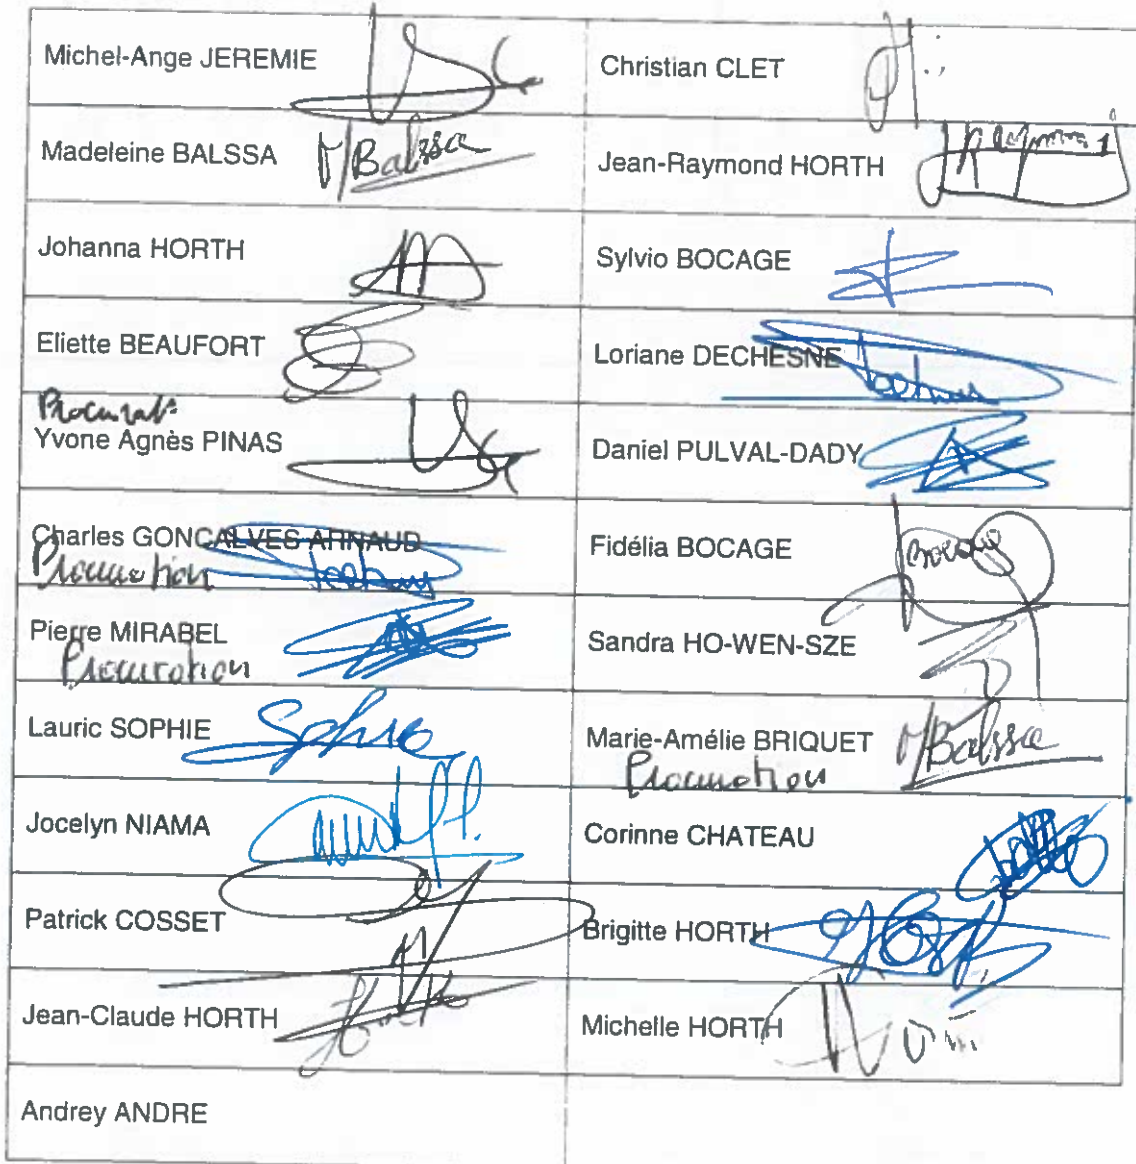 Michel-Ange JEREMIE
Christian CLET
Madeleine BALSSA M/Balssa
Jean-Raymond HORTH
Johanna HORTH
Sylvio BOCAGE
Eliette BEAUFORT
Loriane DECHESNE
Yvone Agnès PINAS
Daniel PULVAL-DADY
Charles GONCALVES ARNAUD
Procuration
Fidélia BOCAGE Bocage
Pierre MIRABEL
Procuration
Sandra HO-WEN-SZE
Lauric SOPHIE Sophie
Marie-Amélie BRIQUET M/Balssa
Procuration
Jocelyn NIAMA
Corinne CHATEAU
Patrick COSSET
Brigitte HORTH
Jean-Claude HORTH
Michelle HORTH
Andrey ANDRE